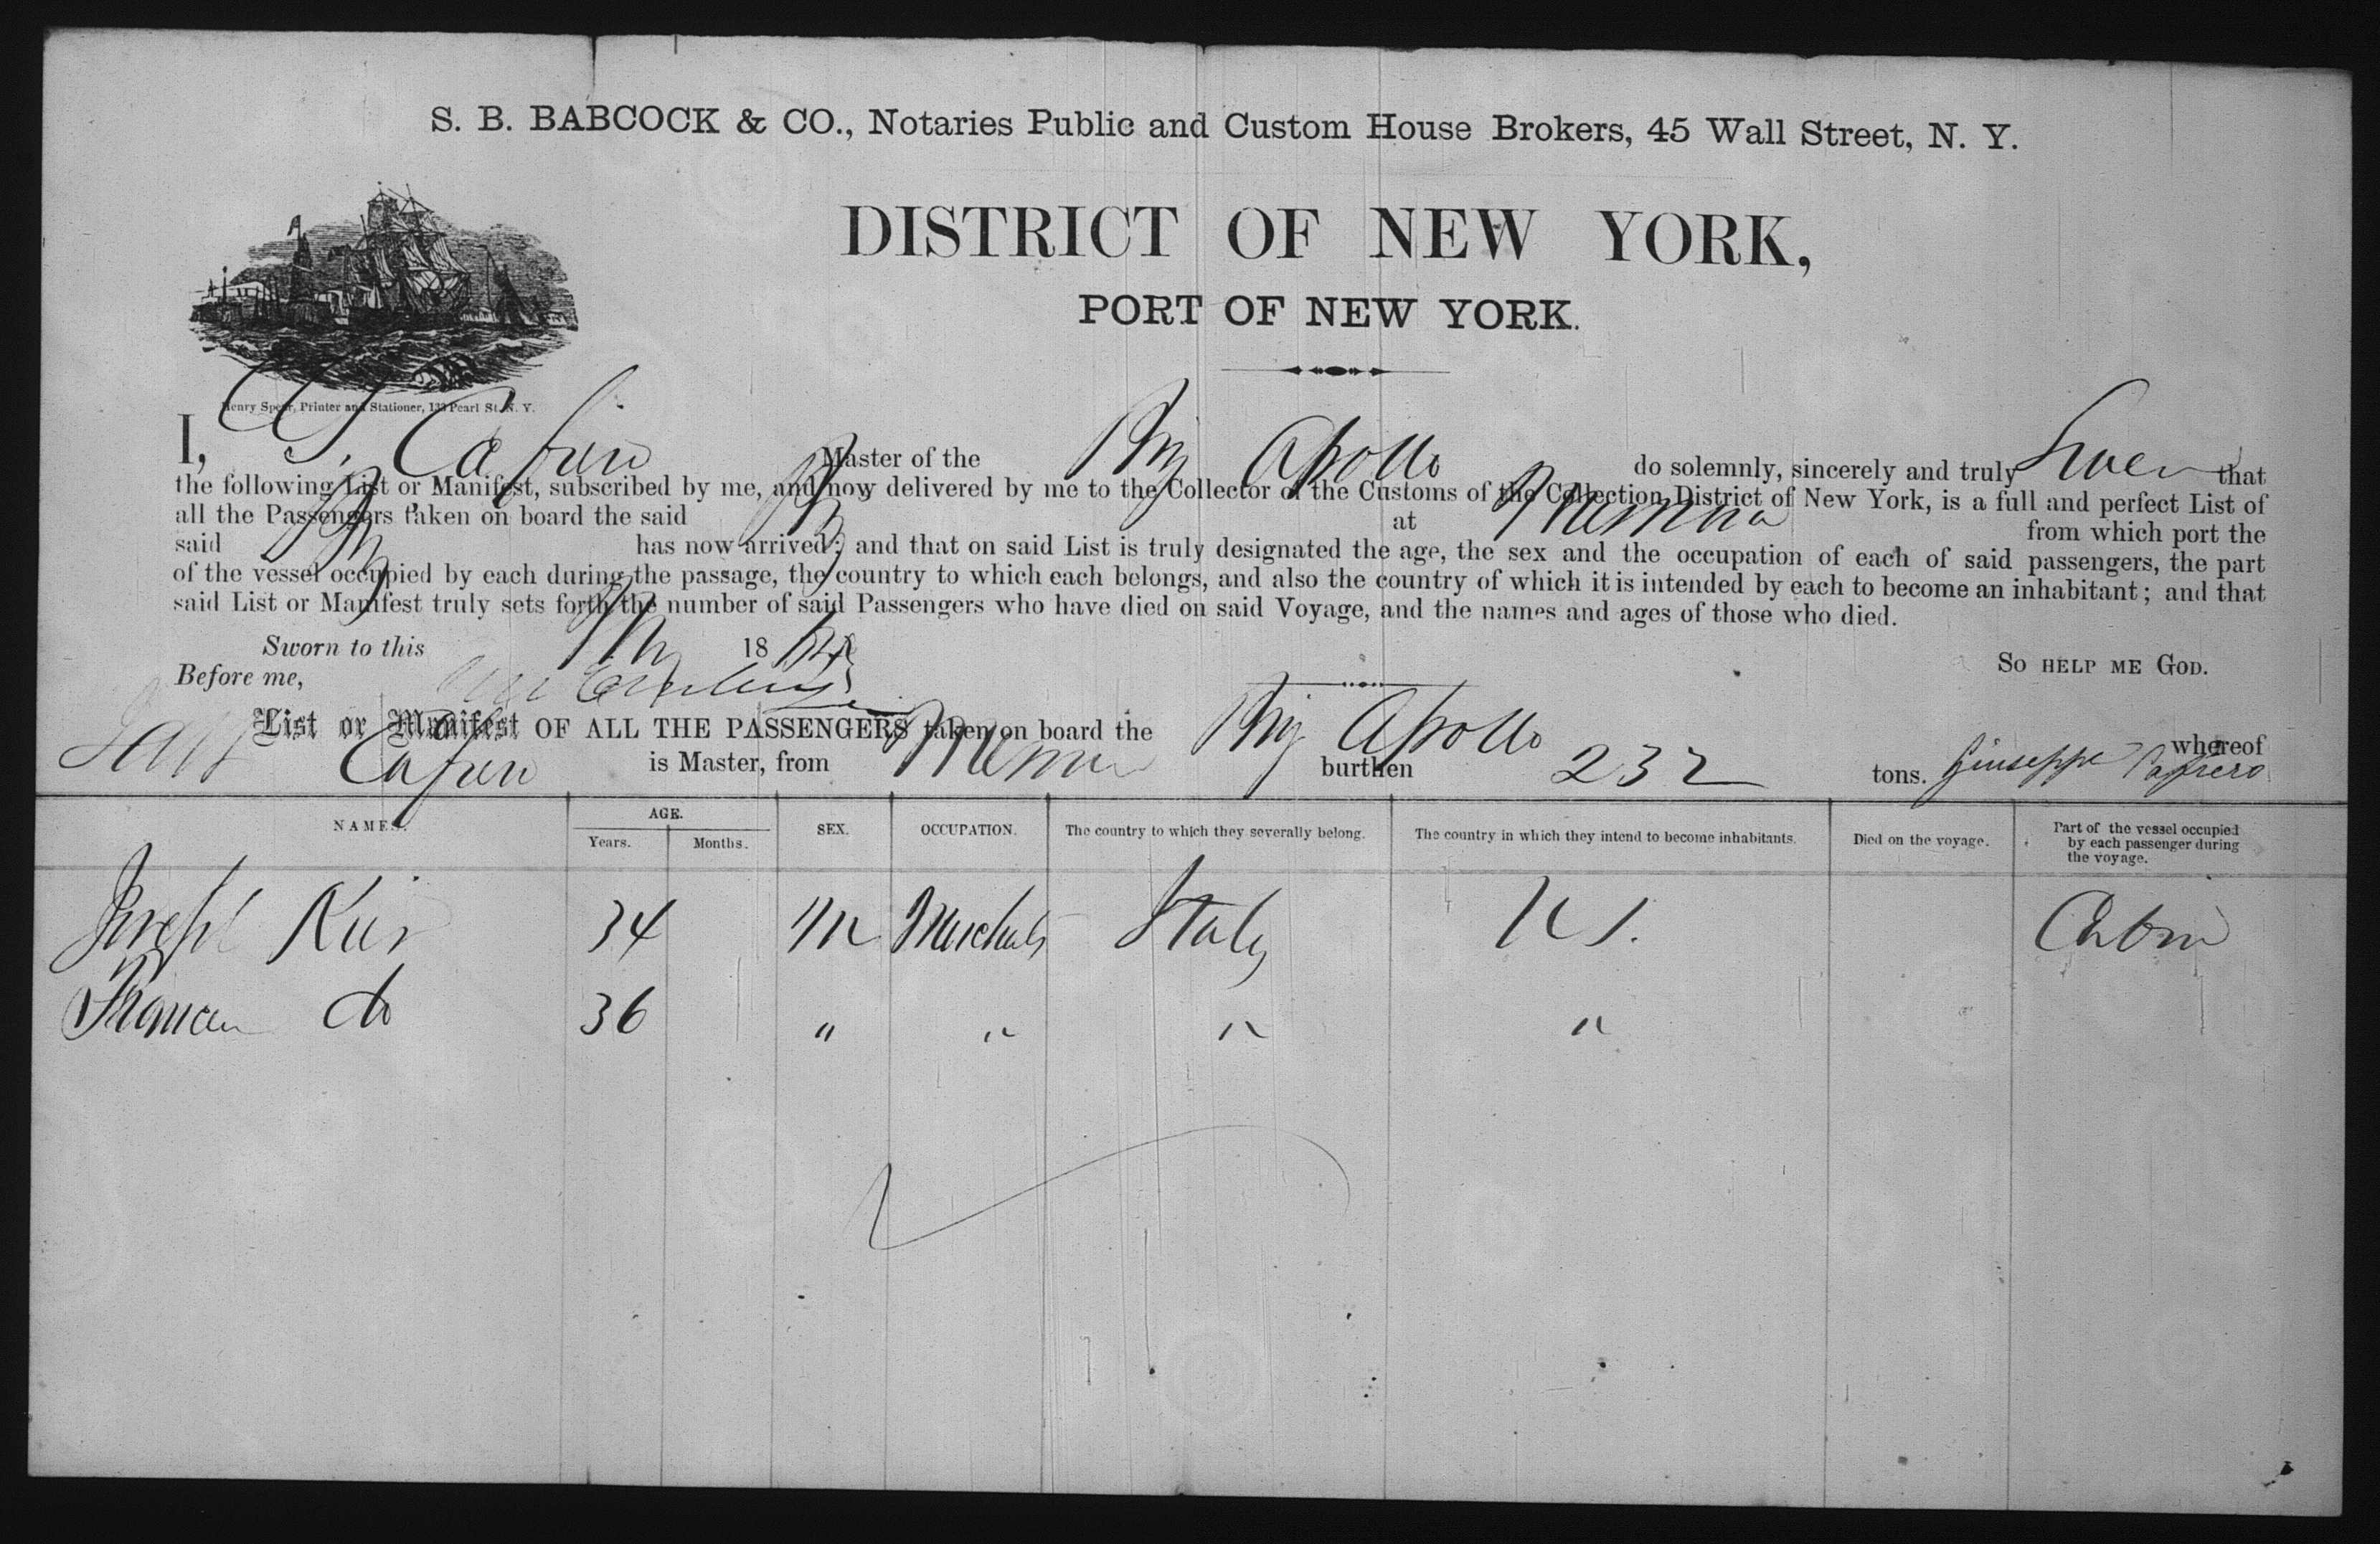 S. B. BABCOCK & CO., Notaries Public and Custom House Brokers, 45 Wall Street, N. Y.
DISTRICT OF NEW YORK,
PORT OF NEW YORK.
Henry Spear, Printer and Stationer, 133 Pearl St. N. Y.
I, G. Cafiero Master of the Brig Apollo do solemnly, sincerely and truly Swear that
the following List or Manifest, subscribed by me, and now delivered by me to the Collector of the Customs of the Collection District of New York, is a full and perfect List of
all the Passengers taken on board the said Brig at Messina from which port the
said Brig has now arrived; and that on said List is truly designated the age, the sex and the occupation of each of said passengers, the part
of the vessel occupied by each during the passage, the country to which each belongs, and also the country of which it is intended by each to become an inhabitant; and that
said List or Manifest truly sets forth the number of said Passengers who have died on said Voyage, and the names and ages of those who died.
Sworn to this 18
So help me God.
Before me,
List or Manifest OF ALL THE PASSENGERS taken on board the Brig Apollo whereof
Cafiero is Master, from Messina burthen 232 tons. Giuseppe Cafiero
NAMES. AGE. SEX. OCCUPATION. The country to which they severally belong. The country in which they intend to become inhabitants. Died on the voyage. Part of the vessel occupied by each passenger during the voyage.
Years. Months.
Joseph 34 M Merchant Italy U S. Cabin
do 36 " " " "